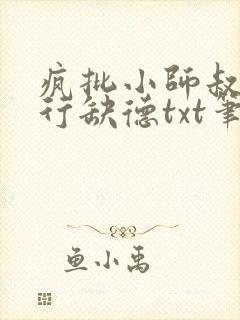 疯批小師叔
行缺德txt筆
鱼小禹